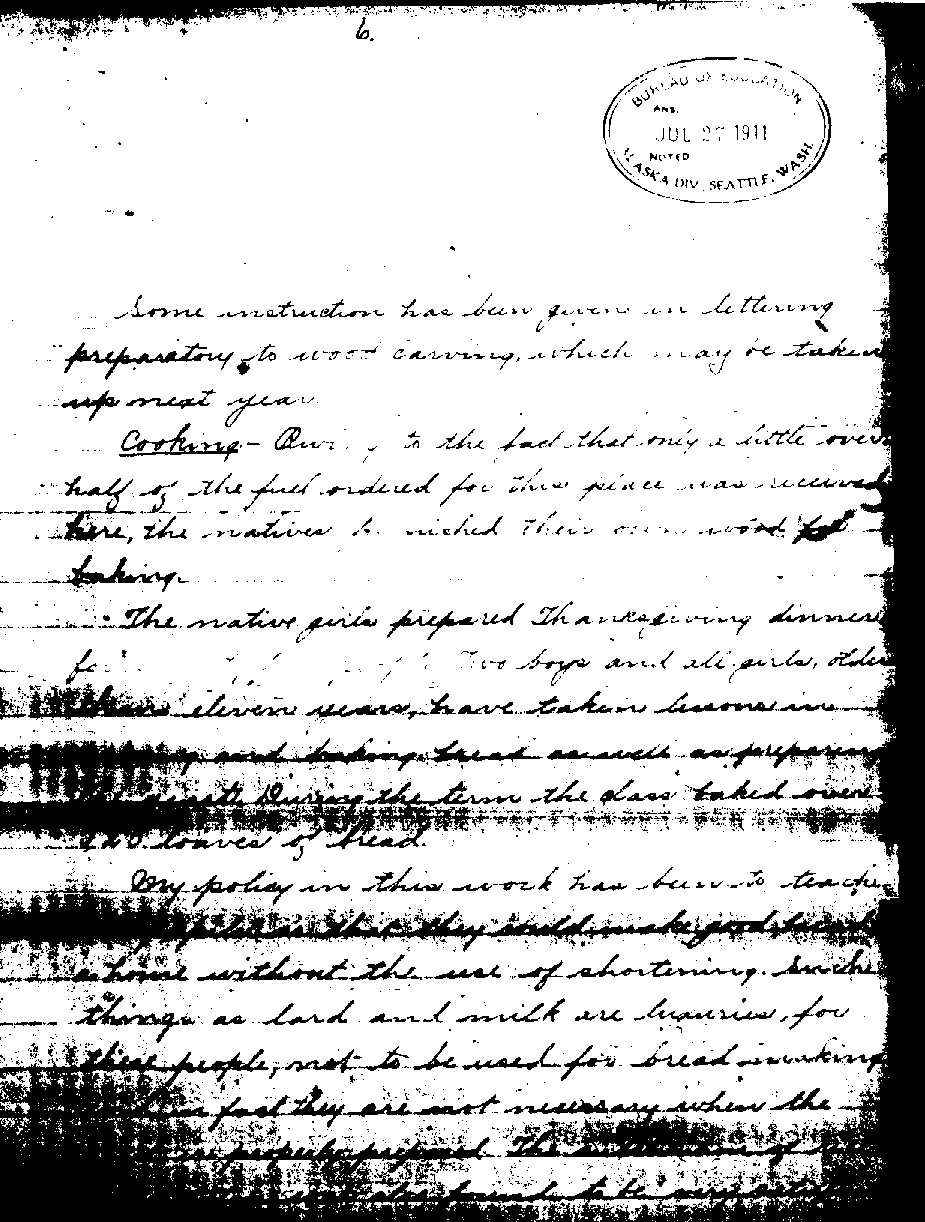 6.
BUREAU OF EDUCATION
ANS.
JUL 27 1911
NOTED
ALASKA DIV. SEATTLE, WASH.
Some instruction has been given in lettering
preparatory to wood carving, which may be taken
up next year.
Cooking - to the fact that only a little over
half of the fuel ordered for this place was received
here, the natives their own wood for
baking.
The native girls prepared Thanksgiving dinner
Two boys and all girls, older
than eleven years, have taken lessons in
and baking bread as well as preparing
During the term the class baked over
loaves of bread.
My policy in this work has been to teach
that they could make good bread
home without the use of shortening. Such
things as lard and milk are luxuries, for
these people, not to be used for bread making
in fact they are not necessary when the
properly prepared. The of
also found to be very